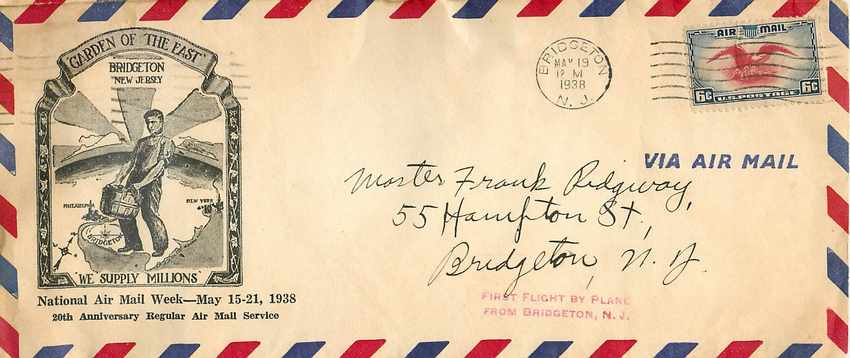 "GARDEN OF THE EAST"
BRIDGETON
NEW JERSEY
PHILADELPHIA
NEW YORK
BRIDGETON
"WE SUPPLY MILLIONS"
National Air Mail Week—May 15-21, 1938
20th Anniversary Regular Air Mail Service
BRIDGETON
MAY 19
12 M
1938
N. J.
AIR MAIL
6c U.S. POSTAGE 6c
VIA AIR MAIL
Master Frank Ridgway,
55 Hampton St,
Bridgeton, N. J.
FIRST FLIGHT BY PLANE
FROM BRIDGETON, N. J.